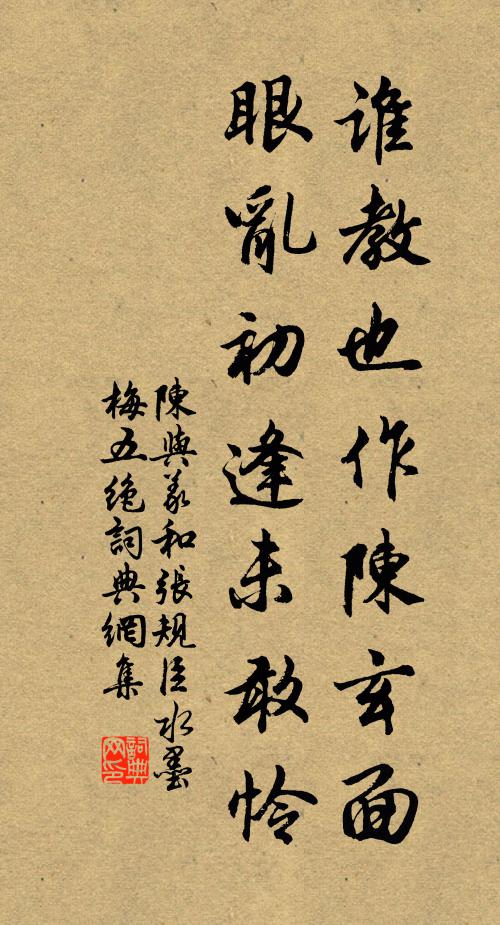 誰教也作陳玄面
眼亂初逢未敢憐
陳與義和張規臣水墨
梅五絶詞典網集
詞典网印